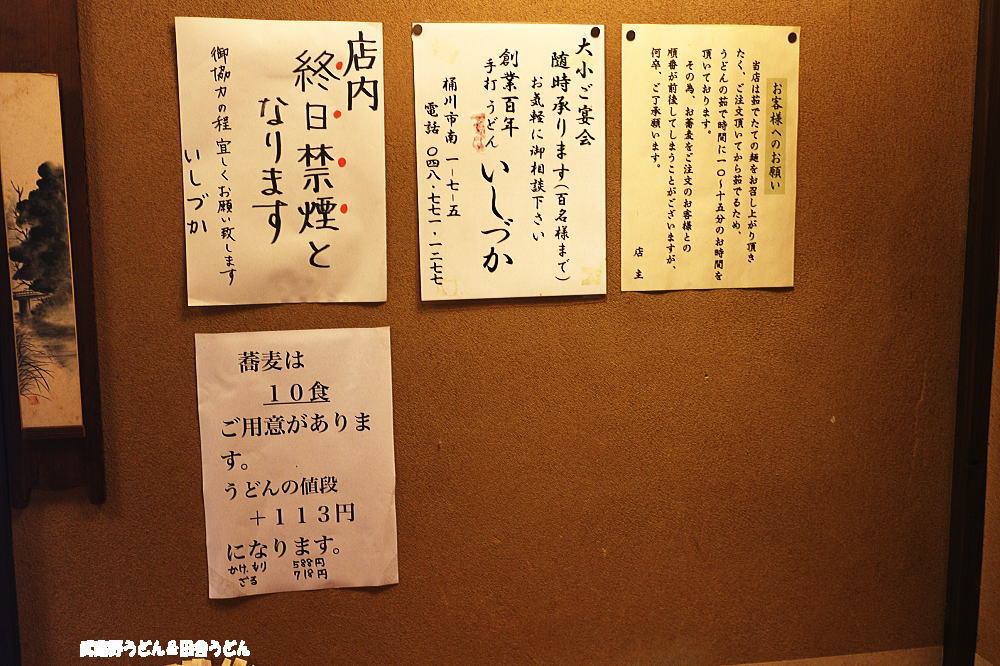 お客様へのお願い
当店は茹でたての麺をお召し上がり頂き
たく、ご注文頂いてから茹でるため、
うどんの茹で時間に一〇～十五分のお時間を
頂いております。
その為、お蕎麦をご注文のお客様との
順番が前後してしまうことがございますが、
何卒、ご了承願います。
店主
大小ご宴会
随時承ります(百名様まで)
お気軽に御相談下さい
創業百年
手打うどん いしづか
桶川市南一-七-五
電話 〇四八・七七一・一二七七
店内
終日禁煙と
なります
御協力の程 宜しくお願い致します
いしづか
蕎麦は
１０食
ご用意がありま
す。
うどんの値段
＋１１３円
になります。
かけ、もり 588円
ざる 718円
武蔵野うどん＆田舎うどん